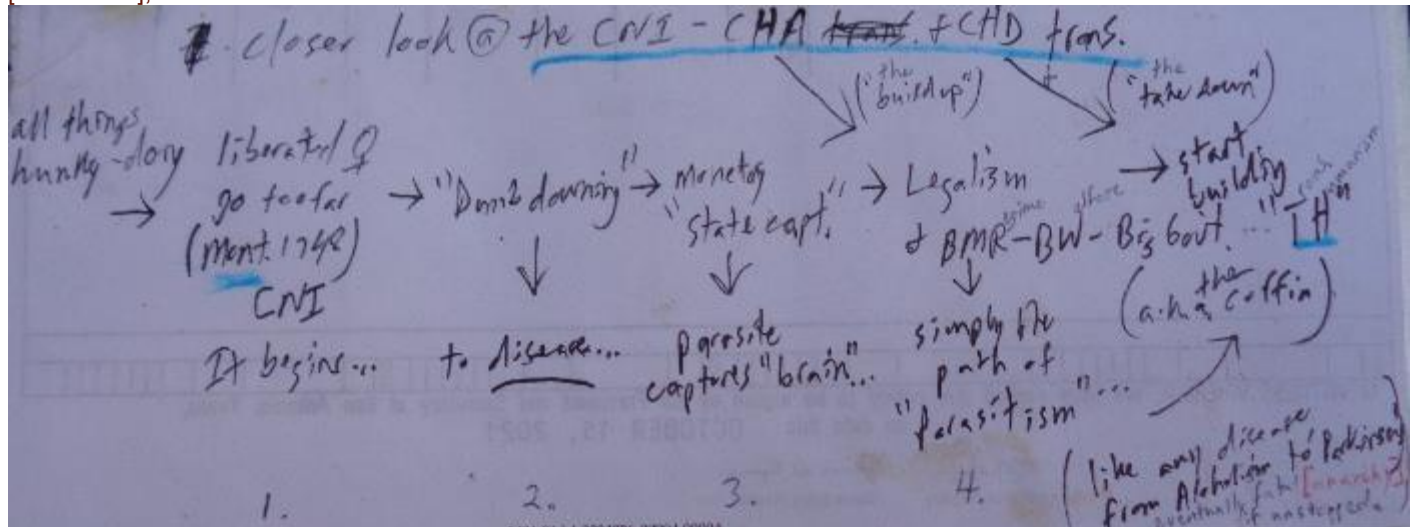 closer look @ the CNI - CHA trans. + CHD trans.
("the buildup")
("the take down")
all things
hunky-dory
→ liberated ♀
go too far
(Mont. 1748)
CNI
→ "Dumb downing" → Monetary
"state capt." → Legalism
& BMR - BW - Big Gov't. ...
→ start
building
"TH"
(a.k.a. the coffin)
It begins...
to disease...
parasite
captures "brain"...
simply the
path of
"Parasitism"...
(like any disease
from Alcoholism to Parkinsons
eventually fatal [anarchy]
if unstopped
1.
2.
3.
4.
OCTOBER 15, 2021